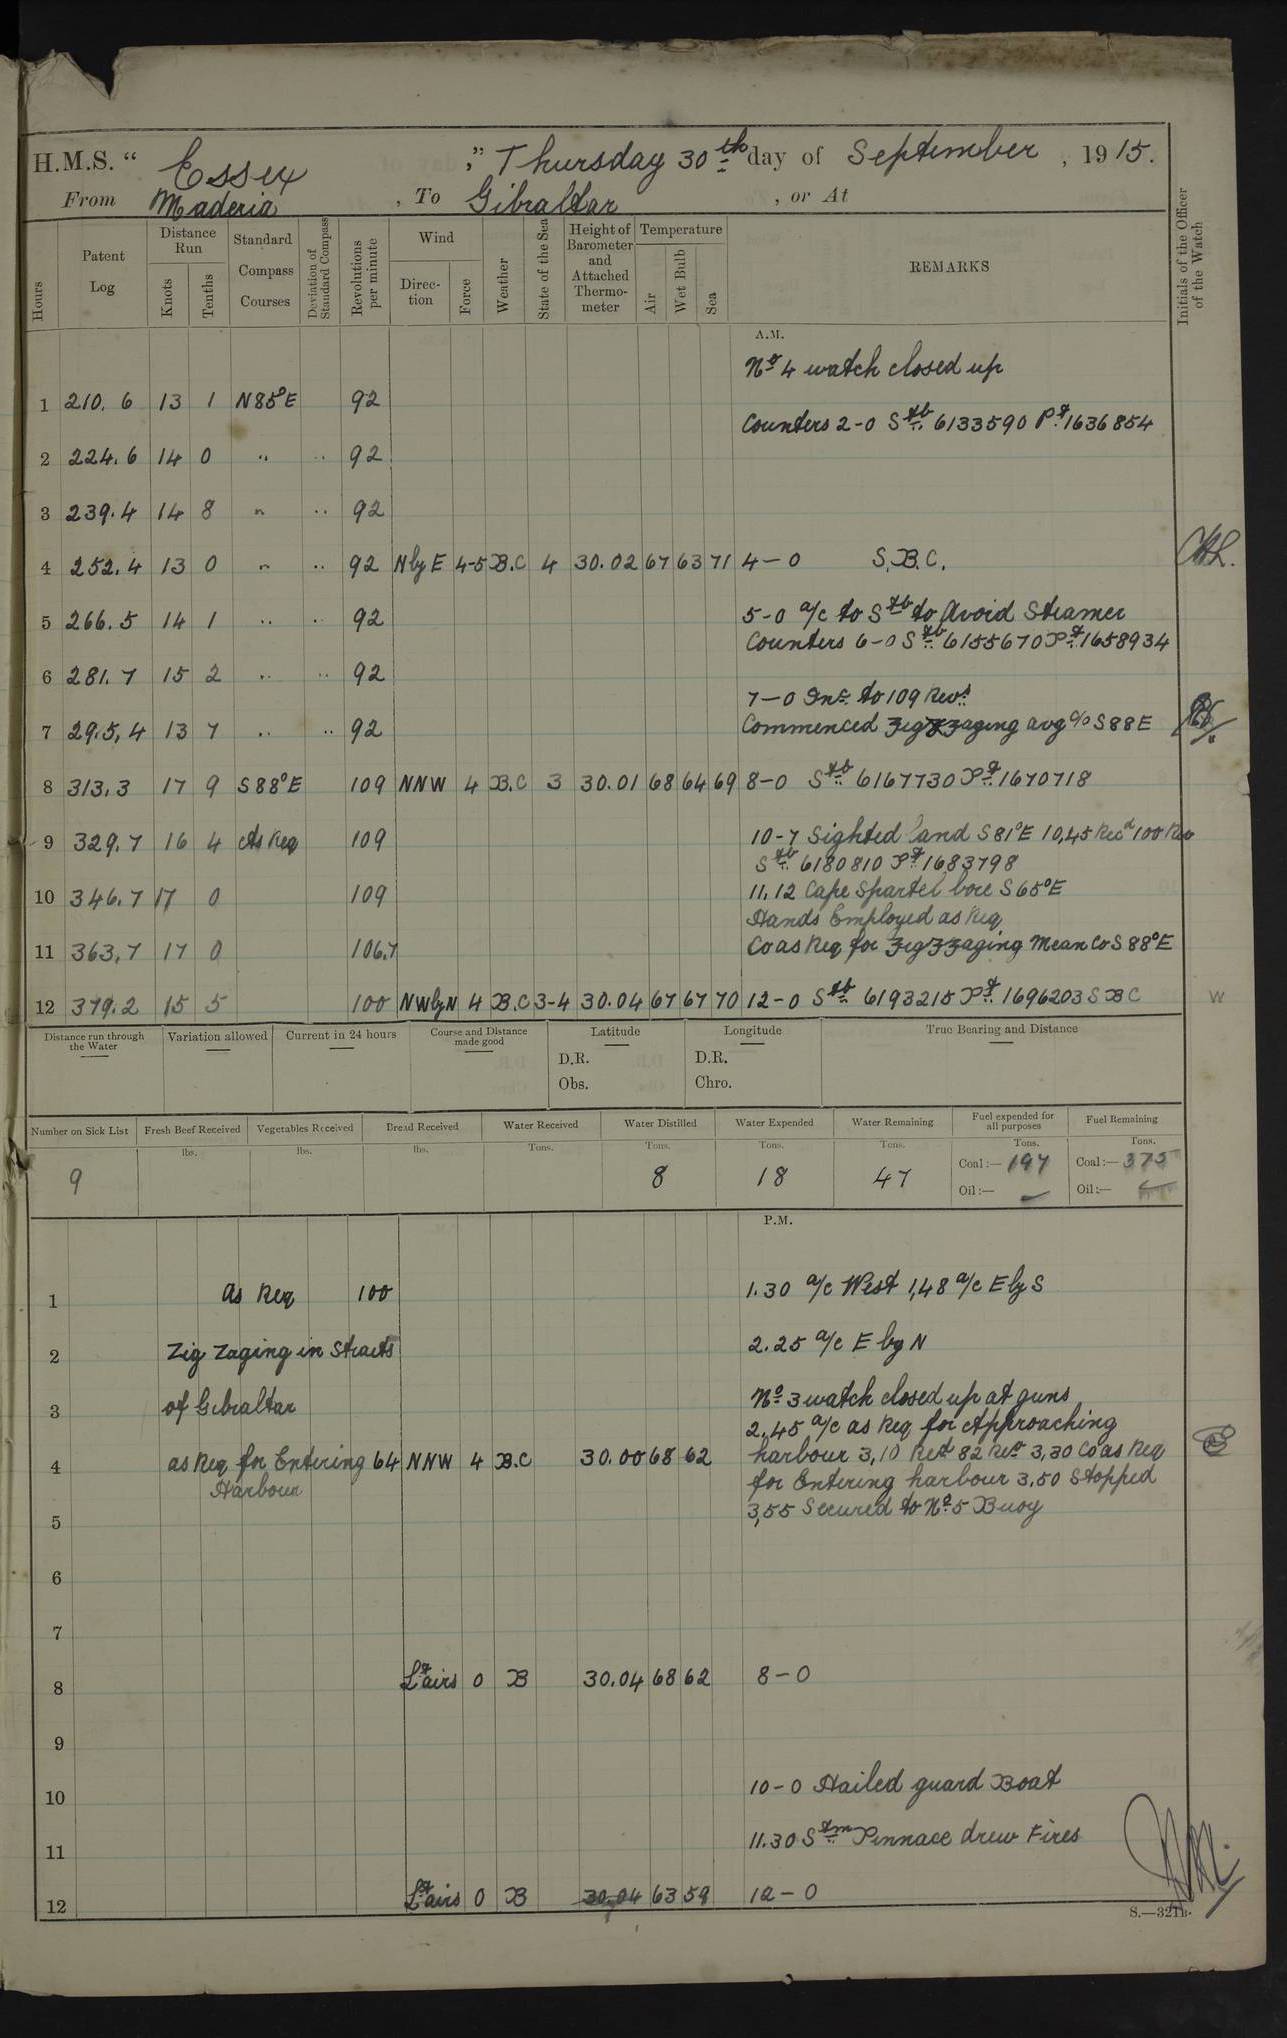 H.M.S. “ Essex ,” Thursday 30th day of September , 1915.
From Maderia , To Gibraltar , or At
Hours
Patent Log
Distance Run
Knots
Tenths
Standard Compass Courses
Deviation of Standard Compass
Revolutions per minute
Wind
Direc-tion
Force
Weather
State of the Sea
Height of Barometer and Attached Thermo-meter
Temperature
Air
Wet Bulb
Sea
REMARKS
Initials of the Officer of the Watch
A.M.
No 4 watch closed up
1 210. 6 13 1 N85°E 92
Counters 2-0 Stb 6133590 Pt 1636854
2 224.6 14 0 " " 92
3 239.4 14 8 " " 92
4 252.4 13 0 " " 92 NbyE 4-5 B.C 4 30.02 67 63 71 4-0 S.B.C.
5 266.5 14 1 " " 92 5-0 a/c to Stb to Avoid Steamer
Counters 6-0 Stb 6155670 Pt 1658934
6 281.7 15 2 " " 92
7-0 Inc. to 109 Revs
7 29.5,4 13 7 " " 92 Commenced Zigzzaging avg c/o S88E
8 313.3 17 9 S88°E 109 NNW 4 B.C 3 30.01 68 64 69 8-0 Stb 6167730 Pt 1670718
9 329.7 16 4 As Req 109 10-7 Sighted land S81°E 10,45 Recd 100 Rev
Stb 6180810 Pt 1683798
10 346.7 17 0 109 11.12 Cape Spartel bore S65°E
Hands Employed as Req
11 363,7 17 0 106.7 Co as Req for Zigzzaging Mean Co S88°E
12 379.2 15 5 100 NWbyN 4 B.C 3-4 30.04 67 67 70 12-0 Stb 6193215 Pt 1696203 S B C
W
Distance run through the Water
Variation allowed
Current in 24 hours
Course and Distance made good
Latitude
D.R.
Obs.
Longitude
D.R.
Chro.
True Bearing and Distance
Number on Sick List
Fresh Beef Received
Vegetables Received
Bread Received
Water Received
Water Distilled
Water Expended
Water Remaining
Fuel expended for all purposes
Fuel Remaining
lbs. lbs. lbs. Tons. Tons. Tons. Tons. Tons. Tons.
9 8 18 47 Coal:— 197 Coal:— 375
Oil:— Oil:—
P.M.
1 As Req 100 1.30 a/c West 1,48 a/c E by S
2 Zig Zaging in Straits 2.25 a/c E by N
3 of Gibraltar No 3 watch closed up at guns
2.45 a/c as Req for Approaching
4 as Req for Entering 64 NNW 4 B.C 30.00 68 62 harbour 3,10 Red 82 Rev 3,30 Co as Req
Harbour for Entering harbour 3.50 Stopped
5 3,55 Secured to No 5 Buoy
6
7
8 Lt airs 0 B 30.04 68 62 8-0
9
10 10-0 Hailed guard Boat
11 11.30 Stm Pinnace drew Fires
12 Lt airs 0 B 30.04 63 59 12-0
S.—321B.